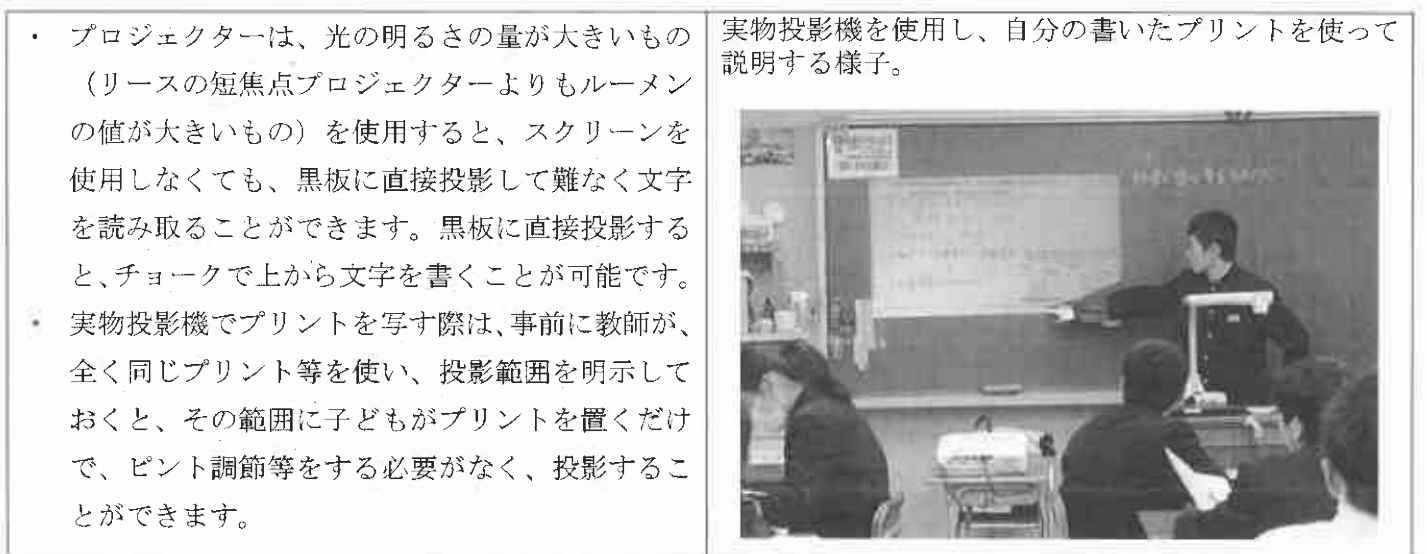 ・ プロジェクターは、光の明るさの量が大きいもの
（リースの短焦点プロジェクターよりもルーメン
の値が大きいもの）を使用すると、スクリーンを
使用しなくても、黒板に直接投影して難なく文字
を読み取ることができます。黒板に直接投影する
と、チョークで上から文字を書くことが可能です。
・ 実物投影機でプリントを写す際は、事前に教師が、
全く同じプリント等を使い、投影範囲を明示して
おくと、その範囲に子どもがプリントを置くだけ
で、ピント調節等をする必要がなく、投影するこ
とができます。
実物投影機を使用し、自分の書いたプリントを使って
説明する様子。